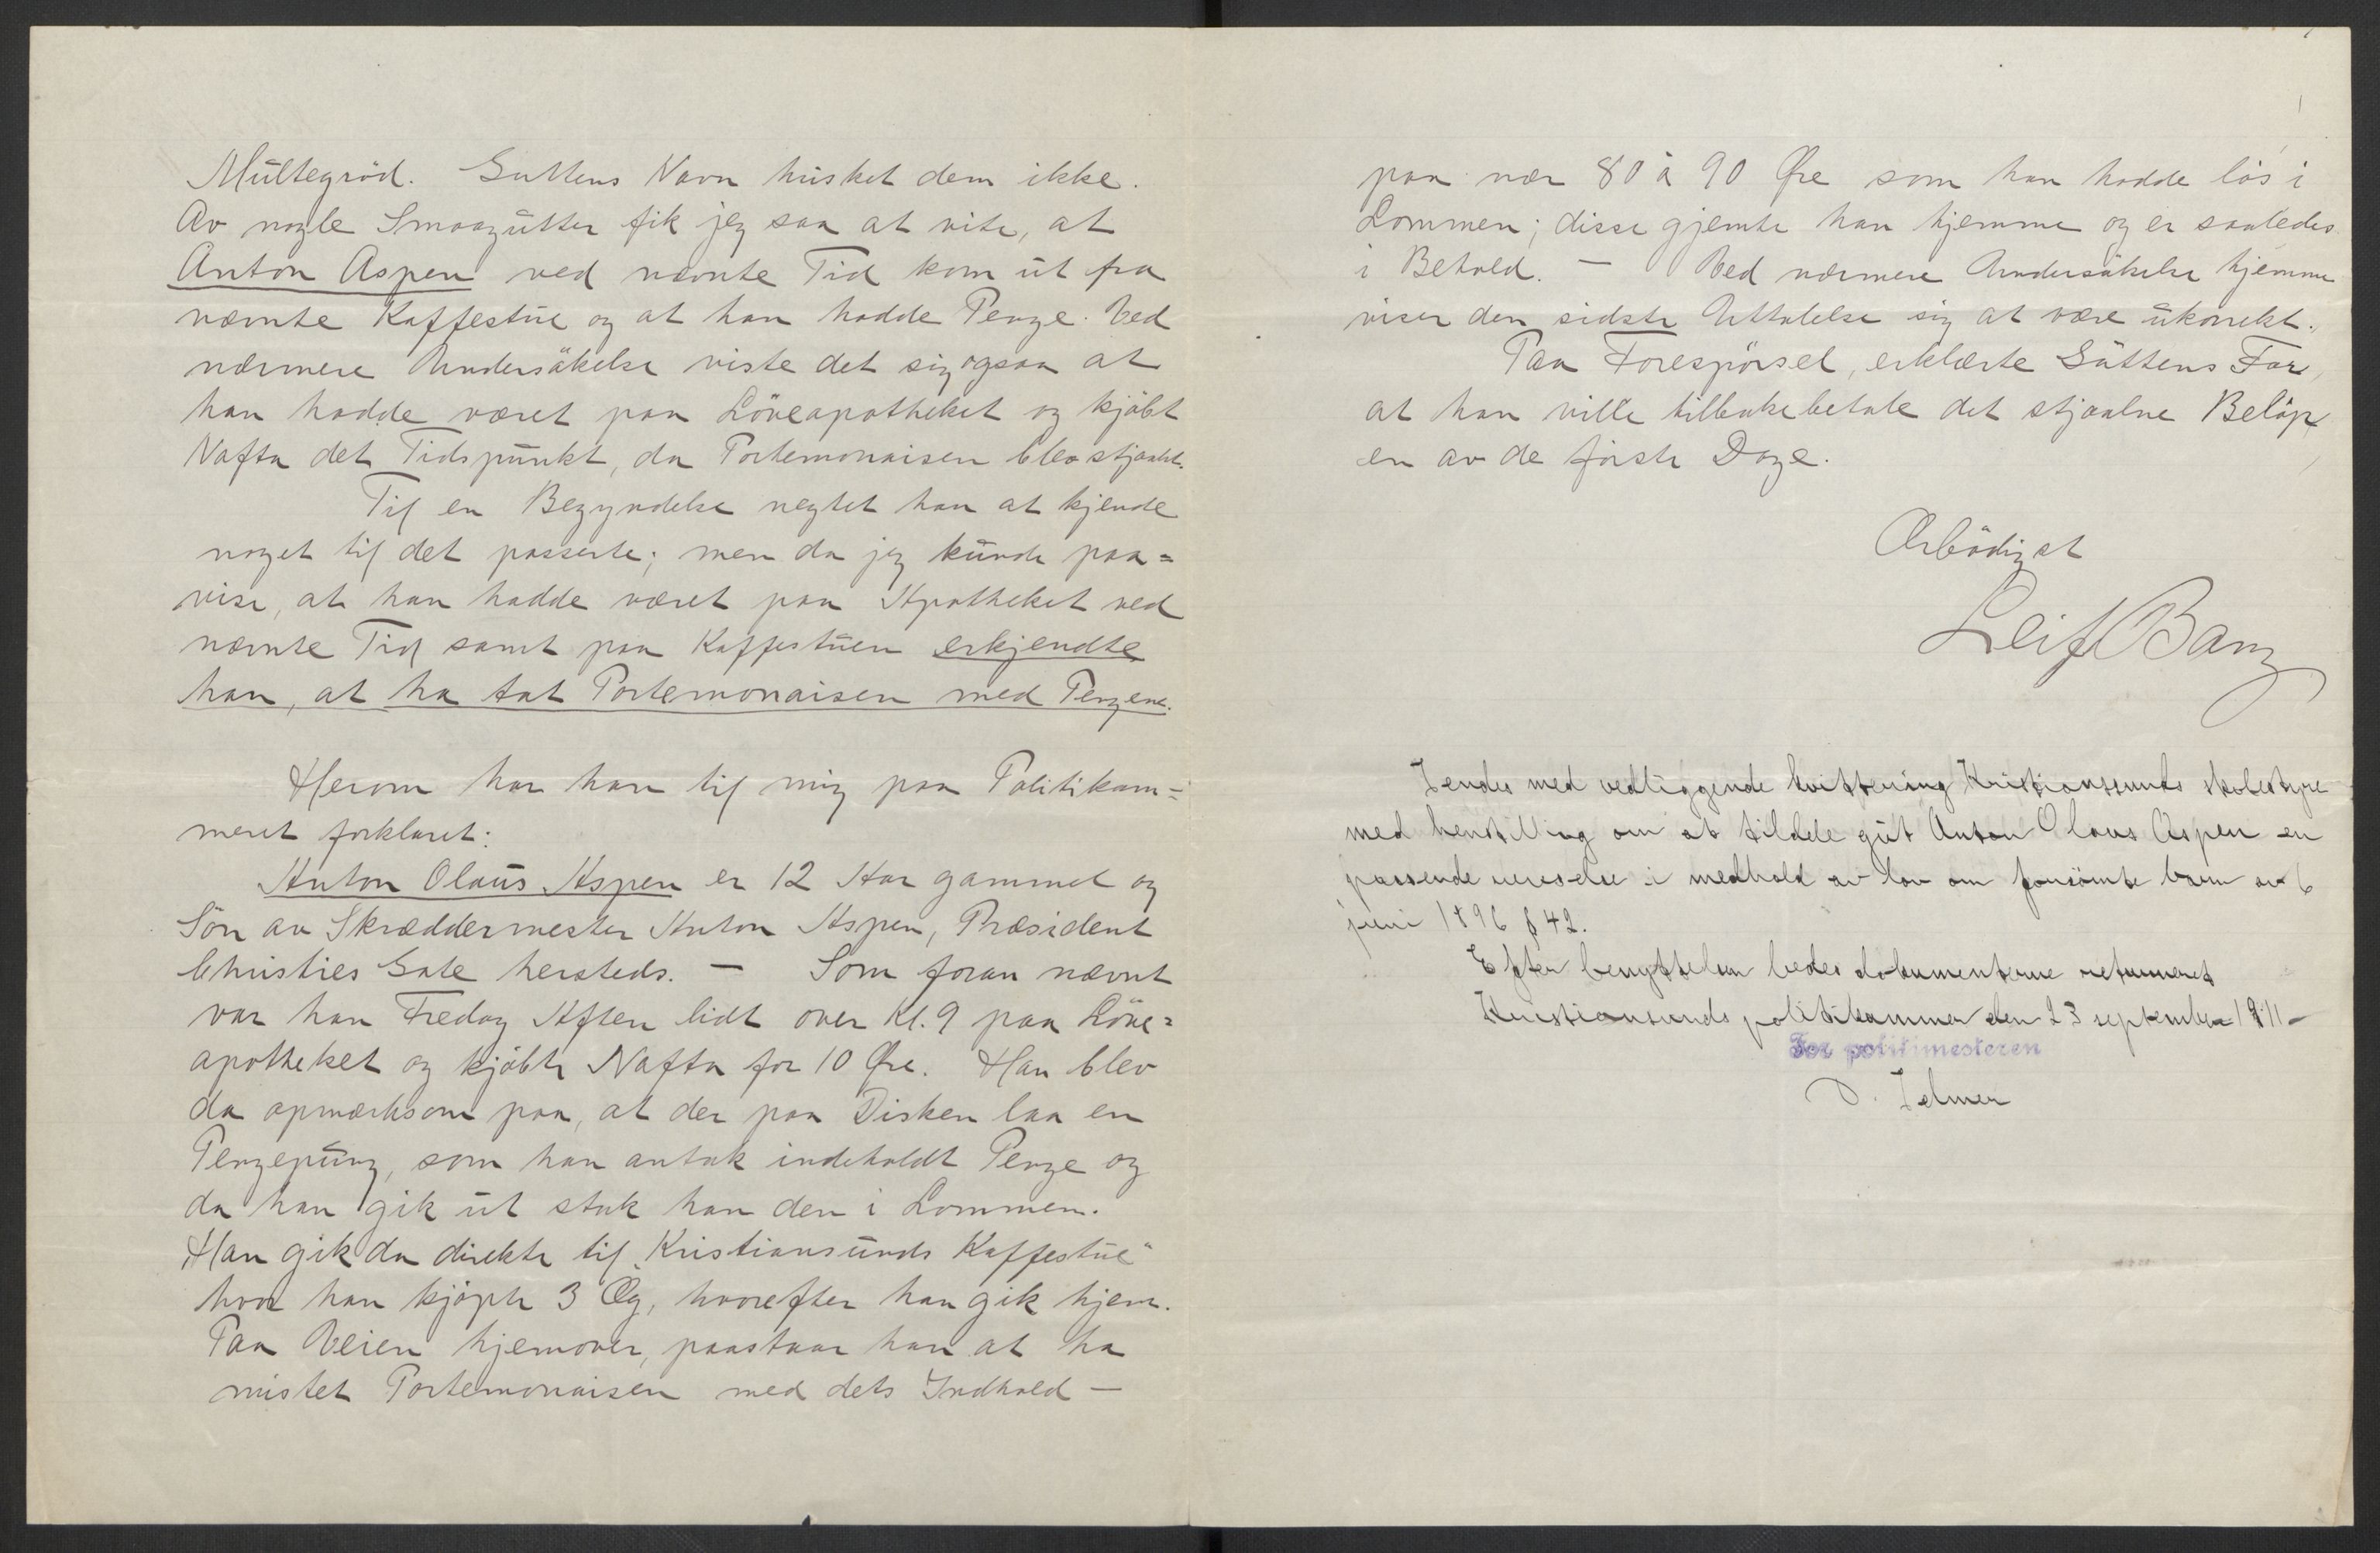 Multegröd. Guttens Navn husket dem ikke.
Av nogle Smaagutter fik jeg saa at vite, at
Anton Aspen ved nævnte Tid kom ut fra
nævnte Kaffestue og at han hadde Penge. Ved
nærmere Undersökelse viste det sig ogsaa at
han hadde været paa Löveapotheket og kjöbt
Nafta det Tidspunkt, da Portemonaisen blev stjaalet.
Til en Begyndelse negtet han at kjende
noget til det passerte; men da jeg kunde paa=
vise, at han hadde været paa Apotheket ved
nævnte Tid samt paa Kaffestuen erkjendte
han, at ha tat Portemonaisen med Pengene.
Herom har han til mig paa Politikam=
meret forklaret:
Anton Olaus Aspen er 12 Aar gammel og
Sön av Skræddermester Anton Aspen, Præsident
Christies Gate hersteds. — Som foran nævnt
var han Fredag Aften lidt over Kl. 9 paa Löve=
apotheket og kjöbte Nafta for 10 Øre. Han blev
da opmerksom paa, at der paa Disken laa en
Pengepung, som han antok indeholdt Penge og
da han gik ut stak han den i Lommen.
Han gik da direkte til „Kristiansunds Kaffestue"
hvor han kjöpte 3 Æg, hvorefter han gik hjem.
Paa Veien hjemover, paastaar han at ha
mistet Portemonaisen med dets Indhold —
paa nær 80 à 90 Øre som han hadde lös i
Lommen; disse gjemte han hjemme og er saaledes
i Behold. — Ved nærmere Undersökelse hjemme
viser den sidste Uttalelse sig at være ukorrekt.
Paa Forespörsel, erklærte Guttens Far,
at han ville tilbakebetale det stjaalne Belöp
en av de förste Dage.
Ærbödigst
Leif Bang
Sendes med vedliggende kvittering Kristianssunds skolestyre
med henstilling om at tildele gut Anton Olaus Aspen en
passende irettesættelse i medhold av lov om forsömte barn av 6
juni 1896 § 42.
Efter benyttelsen bedes dokumenterne returneret
Kristiansunds politikammer den 23 september 1911–
For politimesteren